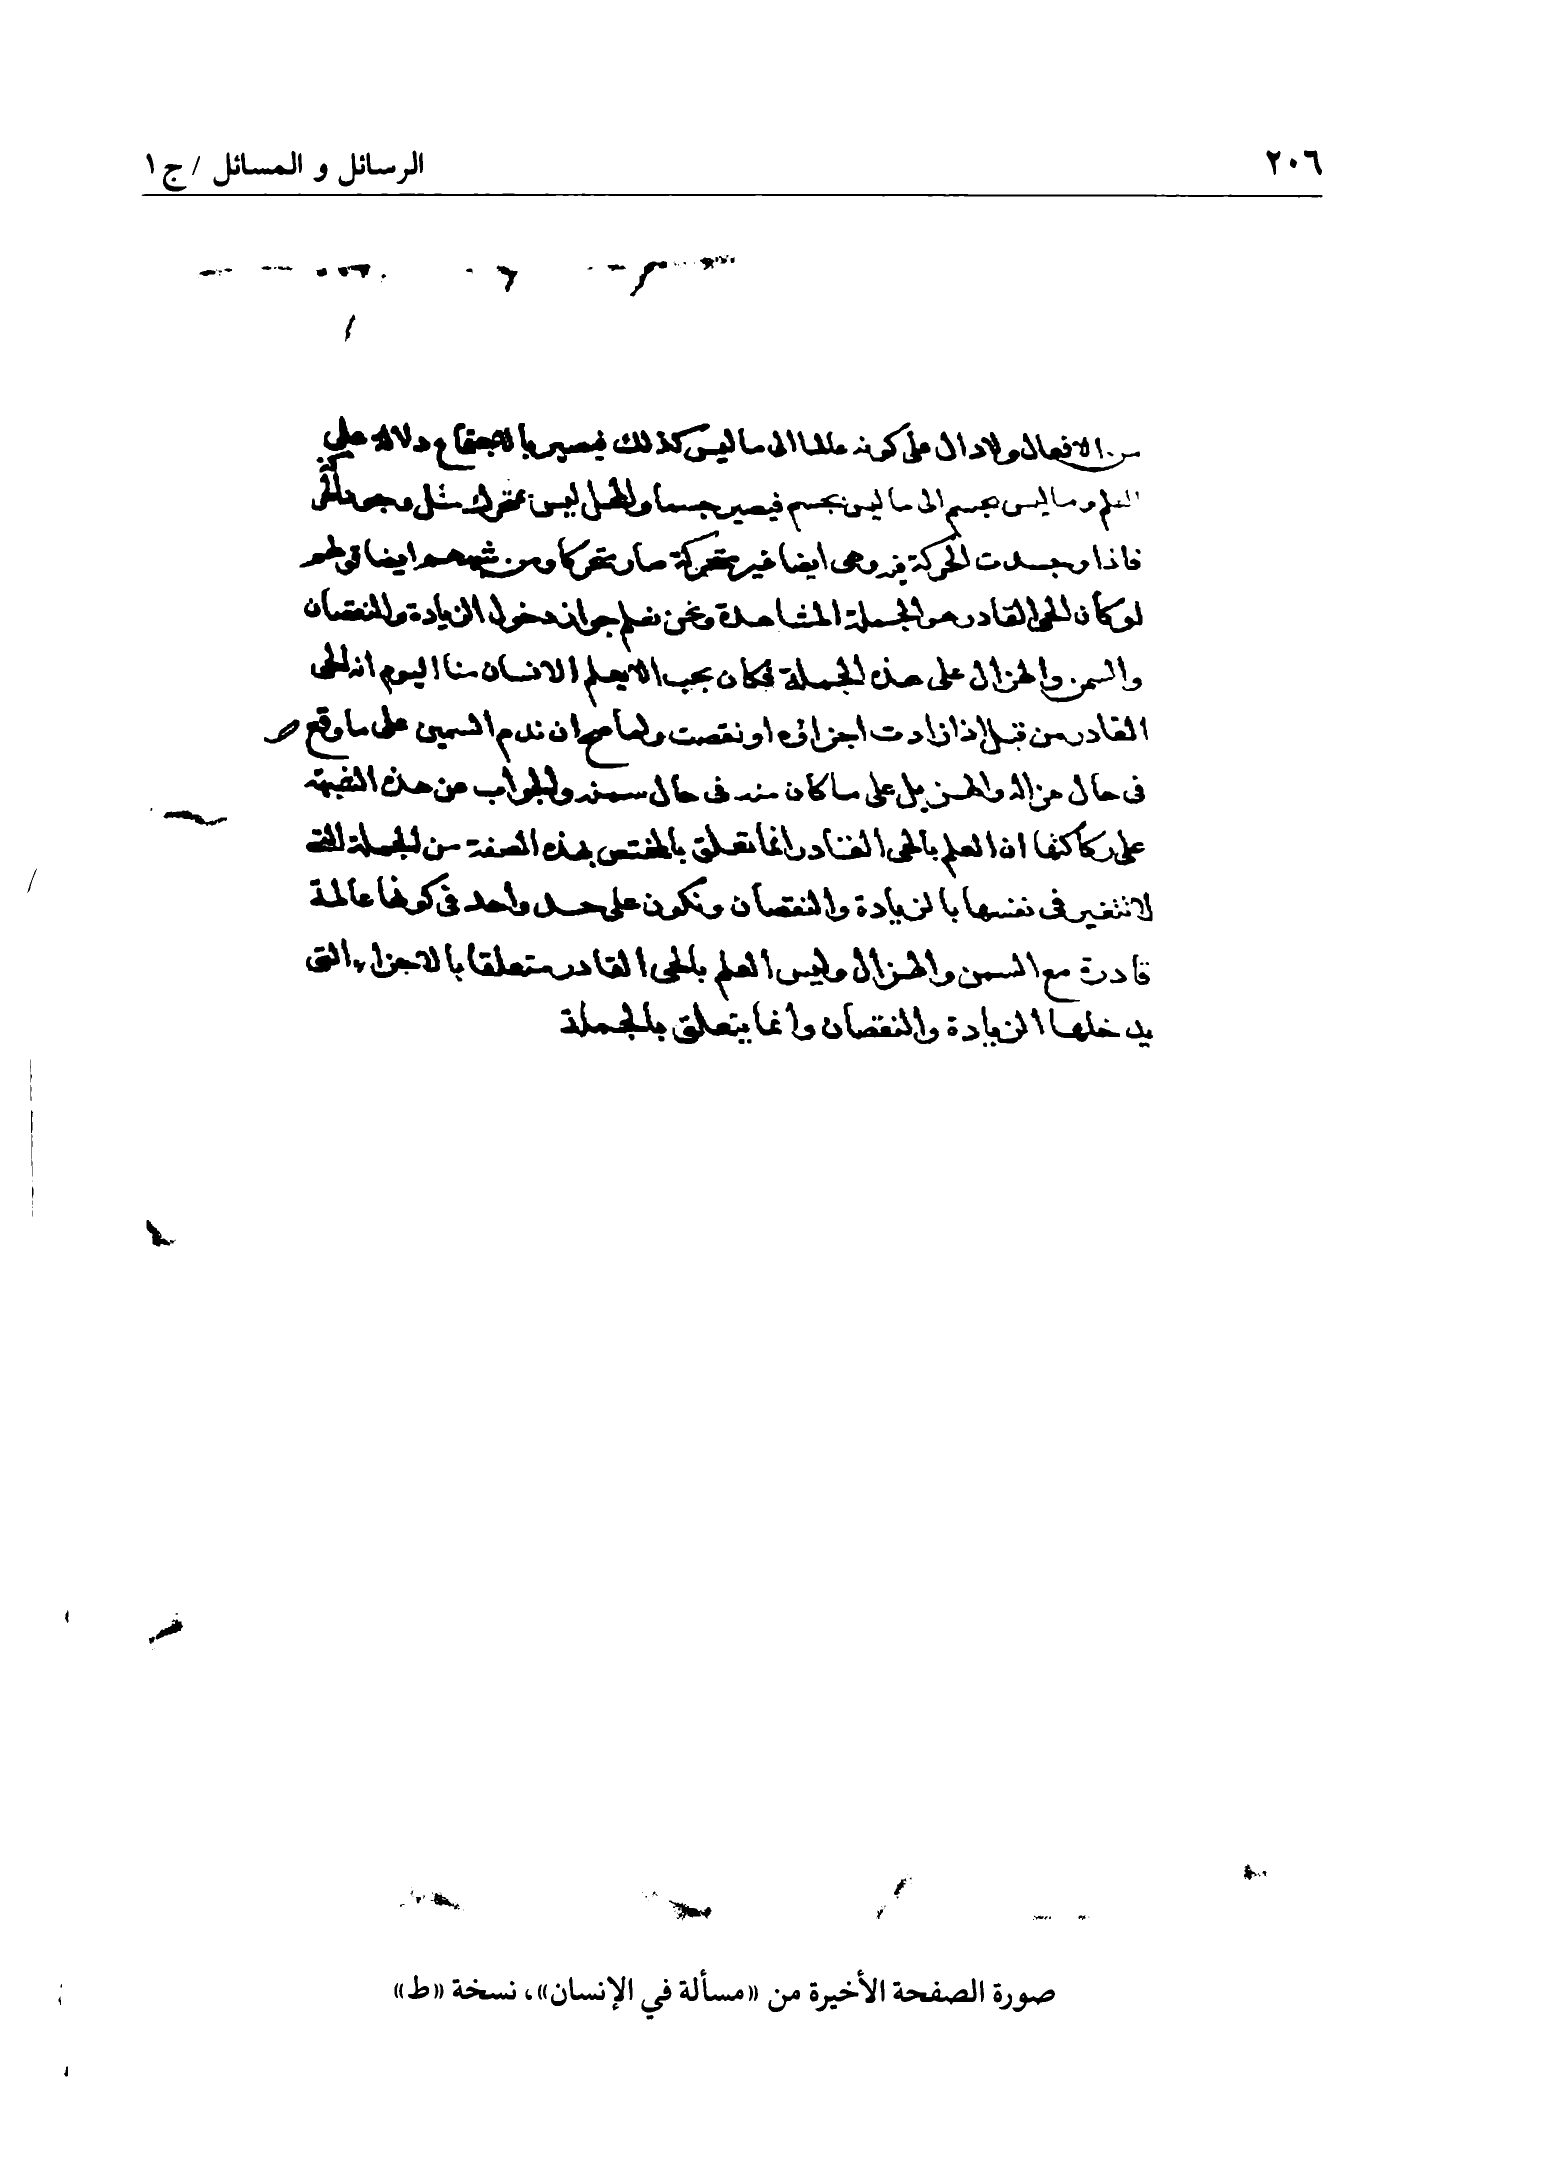 ٢٠٦
الرسائل و المسائل / ج ١
من الافعال ولا دال على كونه عالما الى ما ليس كذلك فيصير بالاجتماع دلالة على
العلم وما ليس بجسم الى ما ليس بجسم فيصير جسما والمحل ليس بمتحرك مثل وجود الحركة
فاذا وجدت الحركة فيه وهى ايضا غير متحركة صار متحركا ومن شبههم ايضا قولهم
لو كان الحى القادر هو الجملة المشاهدة ونحن نعلم جواز دخول الزيادة والنقصان
والسمن والهزال على هذه الجملة فكان يجب الا يعلم الانسان منا اليوم انه الحى
القادر من قبل اذا زادت اجزائه او نقصت ولما صح ان ندم السمين على ما وقع
فى حال هزاله والهزيل على ما كان منه فى حال سمنه والجواب عن هذه الشبهة
على ركاكتها ان العلم بالحى القادر انما تعلق بالمختص بهذه الصفة من الجملة التى
لا تتغير فى نفسها بالزيادة والنقصان وتكون على حد واحد فى كونها عالمة
قادرة مع السمن والهزال وليس العلم بالحى القادر متعلقا بالاجزاء التى
يدخلها الزيادة والنقصان وانما يتعلق بالجملة
صورة الصفحة الأخيرة من «مسألة في الإنسان»، نسخة «ط»